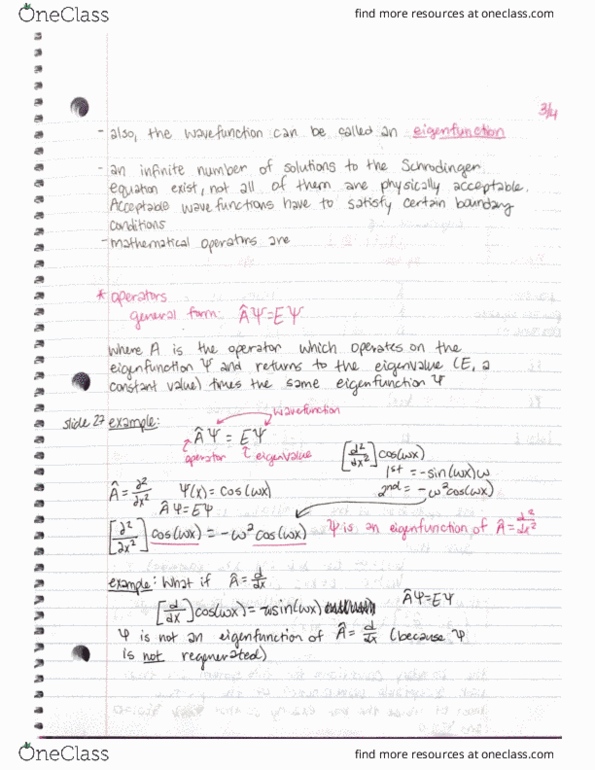 OneClass
find more resources at oneclass.com
3/4
- also, the wavefunction can be called an eigenfunction
- an infinite number of solutions to the Schrodinger
equation exist, not all of them are physically acceptable.
Acceptable wavefunctions have to satisfy certain boundary
conditions
- mathematical operators are
* operators
general form: ÂΨ=EΨ
where A is the operator which operates on the
eigenfunction Ψ and returns to the eigenvalue (E, a
constant value) times the same eigenfunction Ψ
slide 27 example:
wavefunction
ÂΨ = EΨ
operator eigenvalue
[d²/dx²] cos(ωx)
1st = -sin(ωx)ω
2nd = -ω²cos(ωx)
Â = ∂²/∂x² Ψ(x) = cos(ωx)
ÂΨ=EΨ
[∂²/∂x²] cos(ωx) = -ω² cos(ωx) Ψ is an eigenfunction of Â = d²/dx²
example: What if Â = d/dx
[d/dx] cos(ωx) = -ωsin(ωx) ÂΨ=EΨ
Ψ is not an eigenfunction of Â = d/dx (because Ψ
is not regenerated)
OneClass
find more resources at oneclass.com